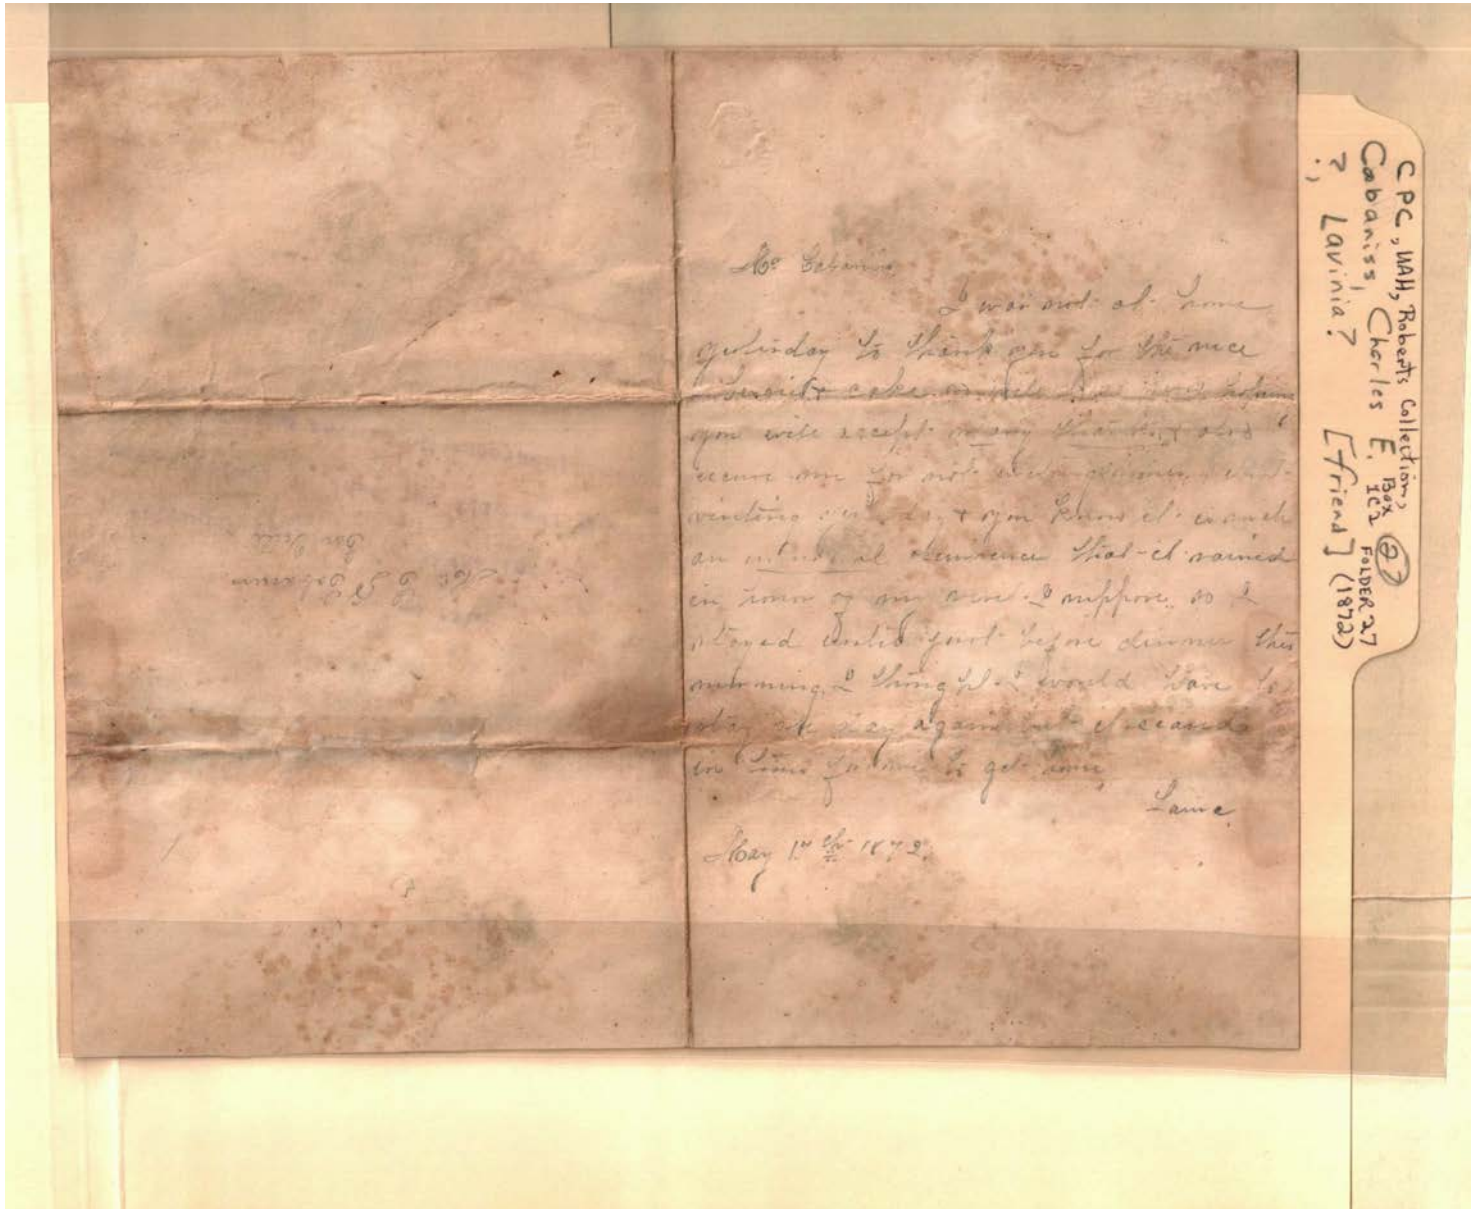 Mr Cabaniss,
I was not at home
yesterday to thank you for the nice
cake
you will accept many thanks, & also
excuse me for not
visiting you know it is such
an unusual occurrence that it rained
in honor of my visit I suppose, so I
stayed until just before dinner this
morning, I thought I would have to
stay all day again but it ceased
in time for me to get home
May 1872.
Mr C E Cabaniss
CPC, UAH, Roberts Collection,
Cabaniss, Charles E. Box 1C2 (2) FOLDER 27
?, Lavinia? [friend] (1872)